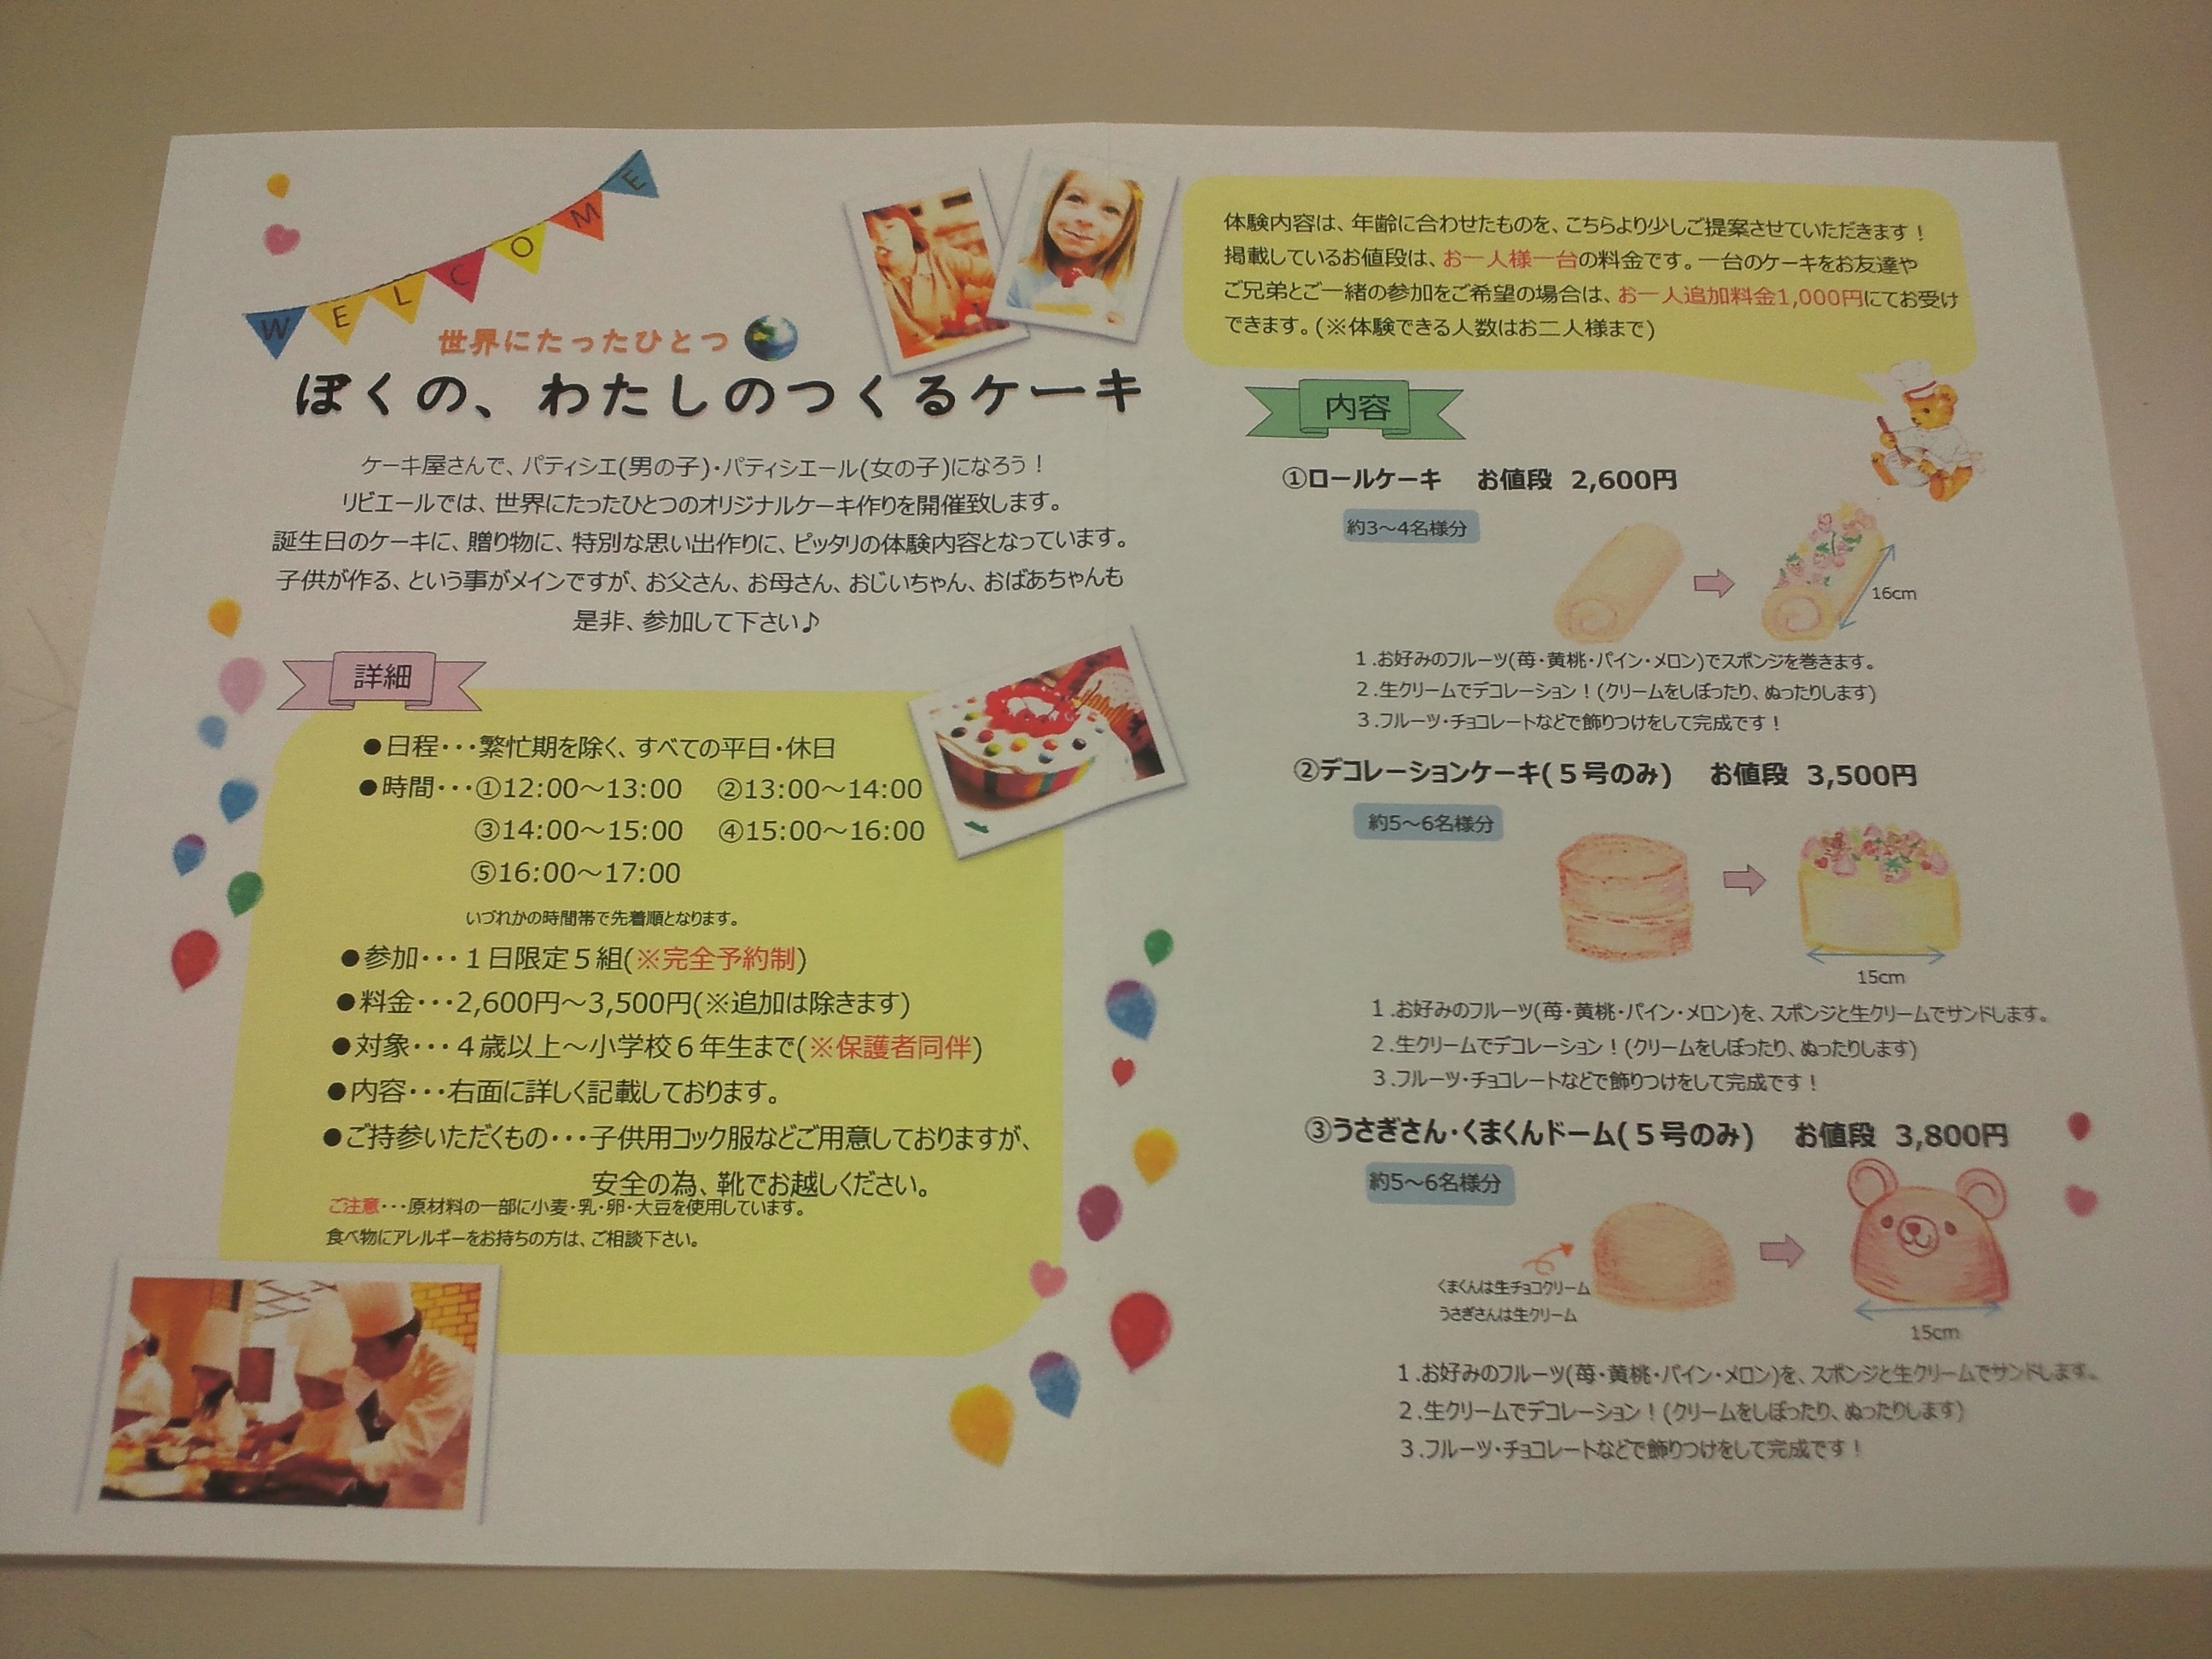 WELCOME
世界にたったひとつ
ぼくの、わたしのつくるケーキ
ケーキ屋さんで、パティシエ(男の子)・パティシエール(女の子)になろう！
リビエールでは、世界にたったひとつのオリジナルケーキ作りを開催致します。
誕生日のケーキに、贈り物に、特別な思い出作りに、ピッタリの体験内容となっています。
子供が作る、という事がメインですが、お父さん、お母さん、おじいちゃん、おばあちゃんも
是非、参加して下さい♪
詳細
●日程・・・繁忙期を除く、すべての平日・休日
●時間・・・①12:00～13:00 ②13:00～14:00
③14:00～15:00 ④15:00～16:00
⑤16:00～17:00
いづれかの時間帯で先着順となります。
●参加・・・１日限定５組(※完全予約制)
●料金・・・2,600円～3,500円(※追加は除きます)
●対象・・・４歳以上～小学校６年生まで(※保護者同伴)
●内容・・・右面に詳しく記載しております。
●ご持参いただくもの・・・子供用コック服などご用意しておりますが、
安全の為、靴でお越しください。
ご注意・・・原材料の一部に小麦・乳・卵・大豆を使用しています。
食べ物にアレルギーをお持ちの方は、ご相談下さい。
体験内容は、年齢に合わせたものを、こちらより少しご提案させていただきます！
掲載しているお値段は、お一人様一台の料金です。一台のケーキをお友達や
ご兄弟とご一緒の参加をご希望の場合は、お一人追加料金1,000円にてお受け
できます。(※体験できる人数はお二人様まで)
内容
①ロールケーキ お値段 2,600円
約3～4名様分
16cm
１.お好みのフルーツ(苺・黄桃・パイン・メロン)でスポンジを巻きます。
２.生クリームでデコレーション！(クリームをしぼったり、ぬったりします)
３.フルーツ・チョコレートなどで飾りつけをして完成です！
②デコレーションケーキ(５号のみ) お値段 3,500円
約5～6名様分
15cm
１.お好みのフルーツ(苺・黄桃・パイン・メロン)を、スポンジと生クリームでサンドします。
２.生クリームでデコレーション！(クリームをしぼったり、ぬったりします)
３.フルーツ・チョコレートなどで飾りつけをして完成です！
③うさぎさん・くまくんドーム(５号のみ) お値段 3,800円
約5～6名様分
くまくんは生チョコクリーム
うさぎさんは生クリーム
15cm
１.お好みのフルーツ(苺・黄桃・パイン・メロン)を、スポンジと生クリームでサンドします。
２.生クリームでデコレーション！(クリームをしぼったり、ぬったりします)
３.フルーツ・チョコレートなどで飾りつけをして完成です！